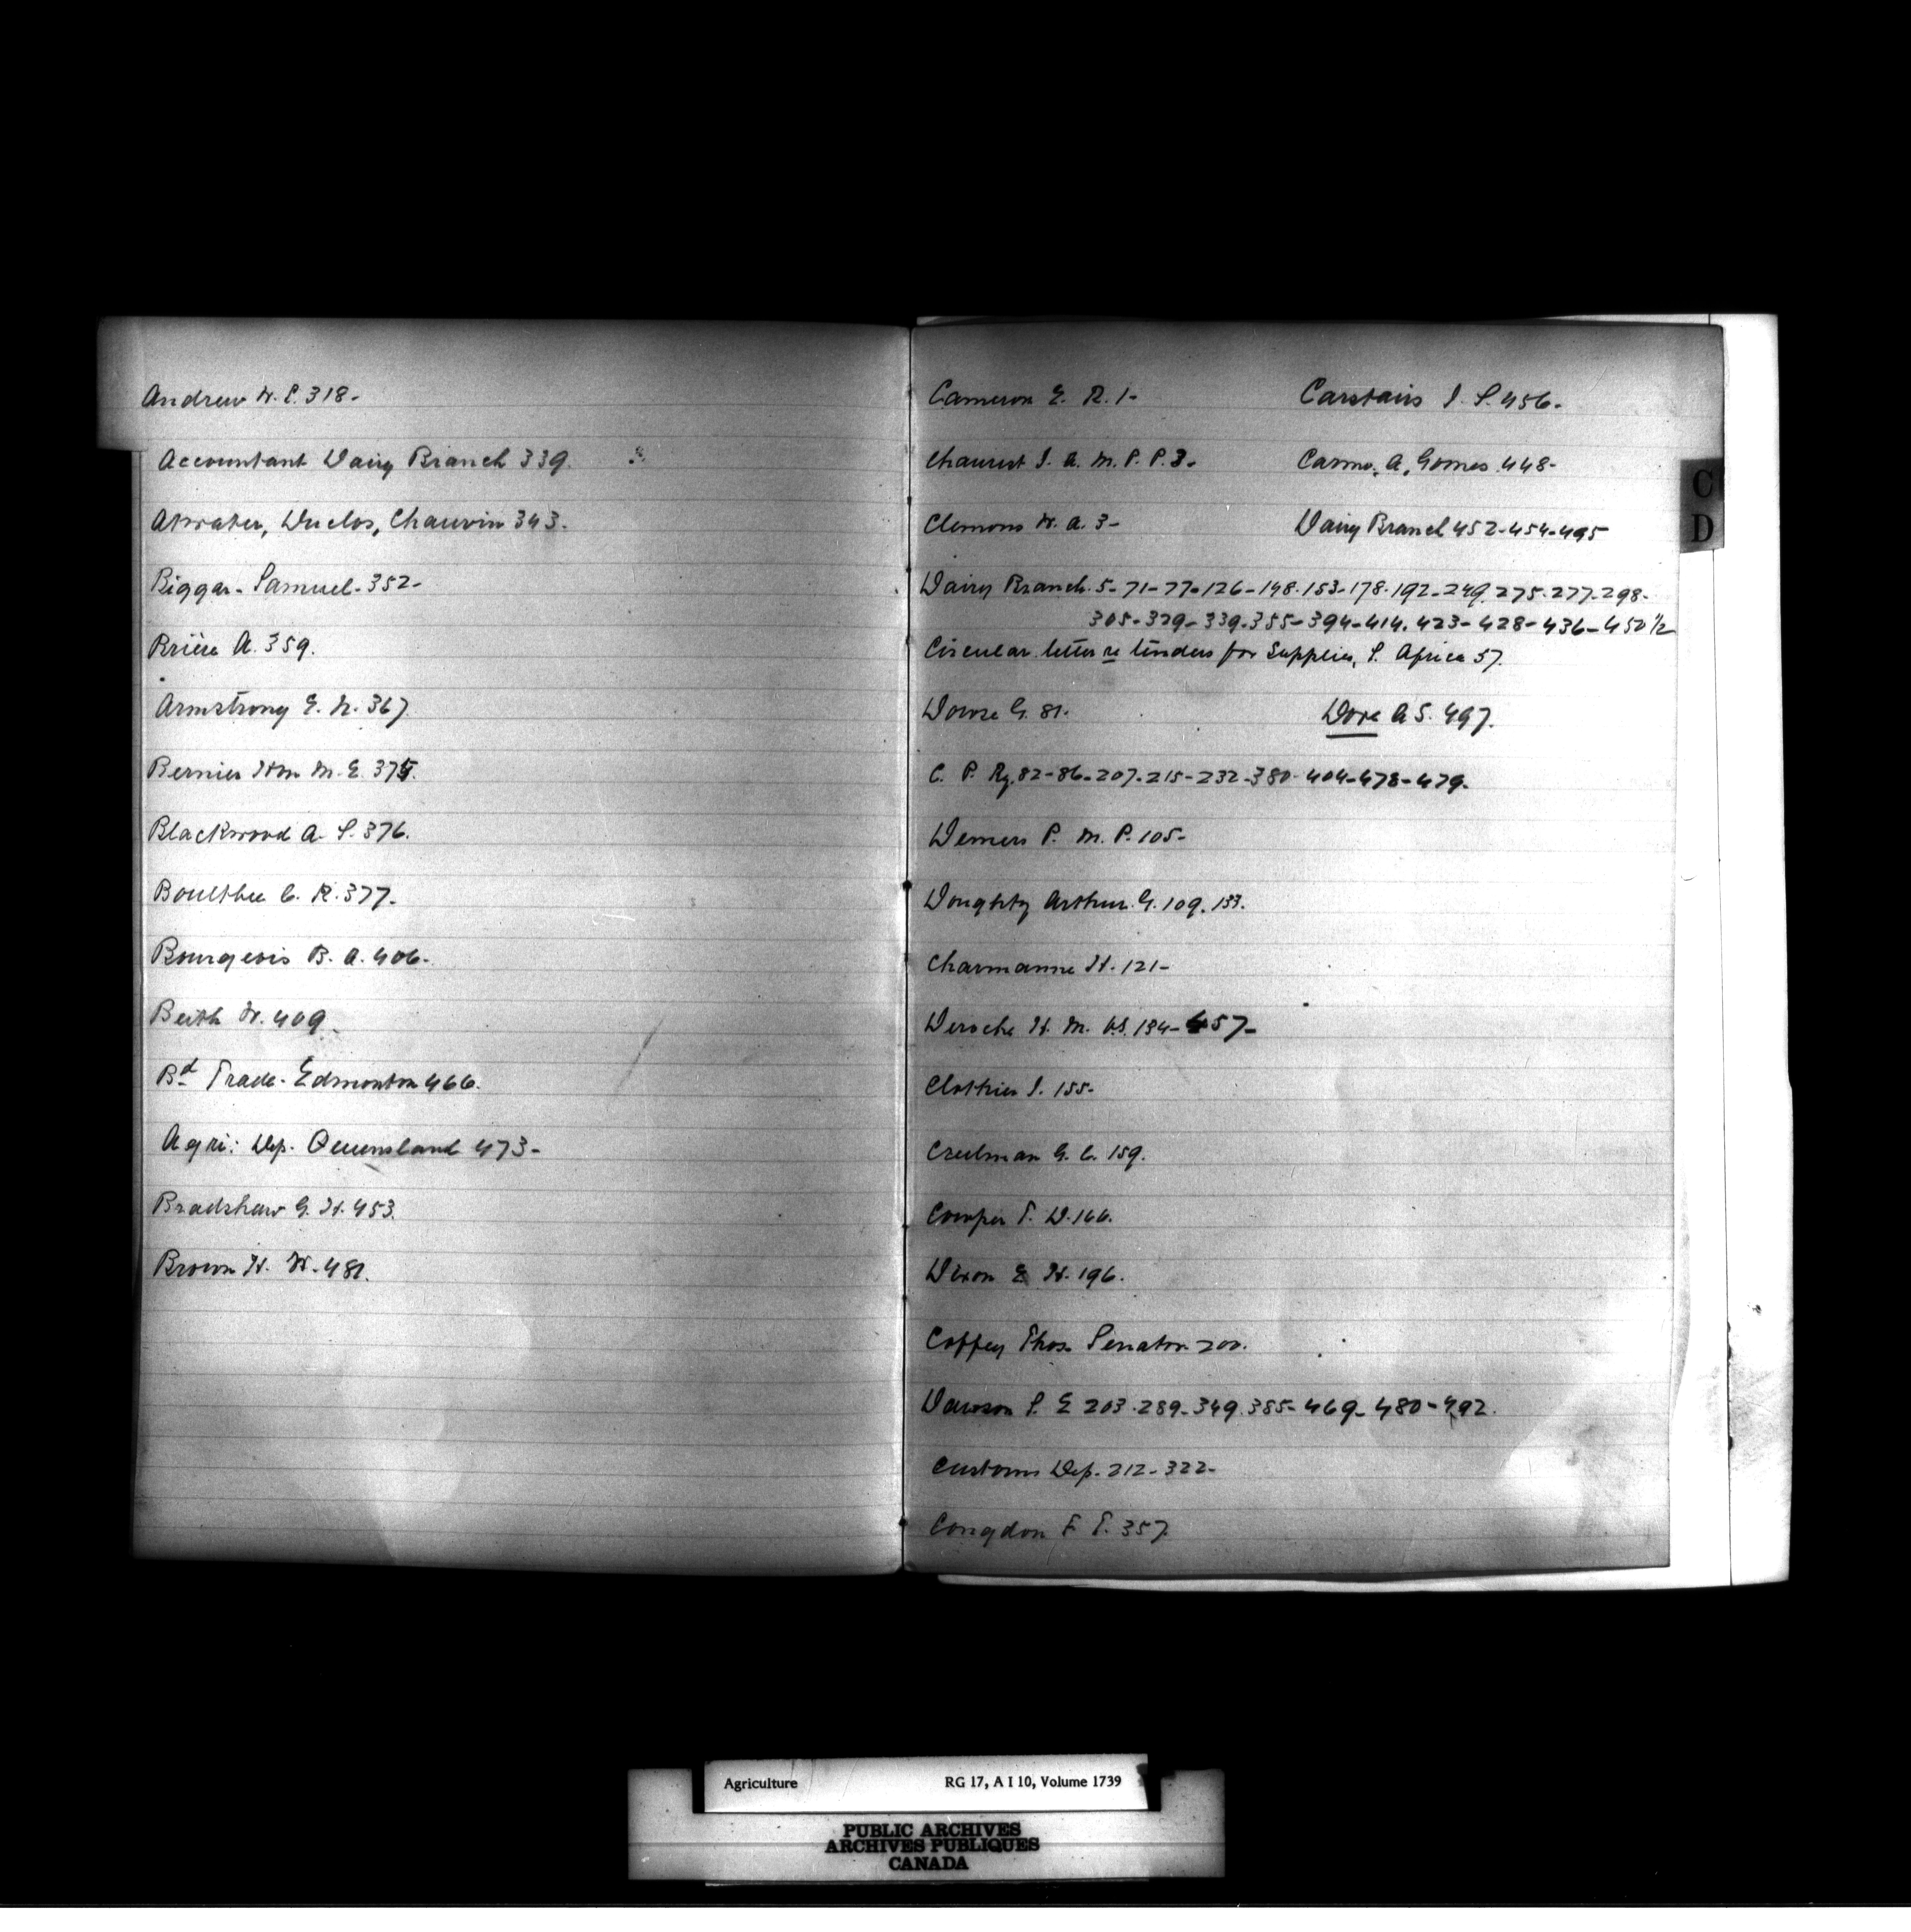 Andrew W. E. 318-
Accountant Dairy Branch 339.
Atwater, Duclos, Chauvin 343.
Biggar- Samuel- 352-
Brière A. 359.
Armstrong E. N. 367.
Bernier Hon M. E. 375.
Blackwood A. S. 376.
Boultbee C. R. 377-
Bourgeois B. A. 406-
Beith W. 409
Bd Trade- Edmonton 466.
Agri: Dep. Queensland 473-
Bradshaw G. H. 453.
Brown H. W. 481.
Cameron E. R. 1-
Carstairs J. S. 456-
Chauret J. A. M. P. P. 3-
Carmo, A, Gomes 448-
Clemons W. A. 3-
Dairy Branch 452-454-495
Dairy Branch. 5-71-77-126-148-153-178-192-249.275-277-298-
305-329-339-355-394-414.423-428-436-450 1/2
Circular letter re tenders for Supplies, S. Africa 57.
Dowse G. 81-
Dore A S. 497.
C. P. Ry. 82-86-207-215-232-380-404-478-479.
Demers P. M. P. 105-
Doughty Arthur. G. 109. 133.
Charmanne H. 121-
Deroche H. M. 134-457-
Clothier J. 155-
Creelman G. C. 159.
Cowper T. D. 166.
Dixon E H. 196.
Coffey Thos. Senator 200.
Dawson S. E 203.289-349.385-469-480-492.
Customs Dep. 212-322-
Congdon F. T. 357
C
D
Agriculture RG 17, A I 10, Volume 1739
PUBLIC ARCHIVES
ARCHIVES PUBLIQUES
CANADA